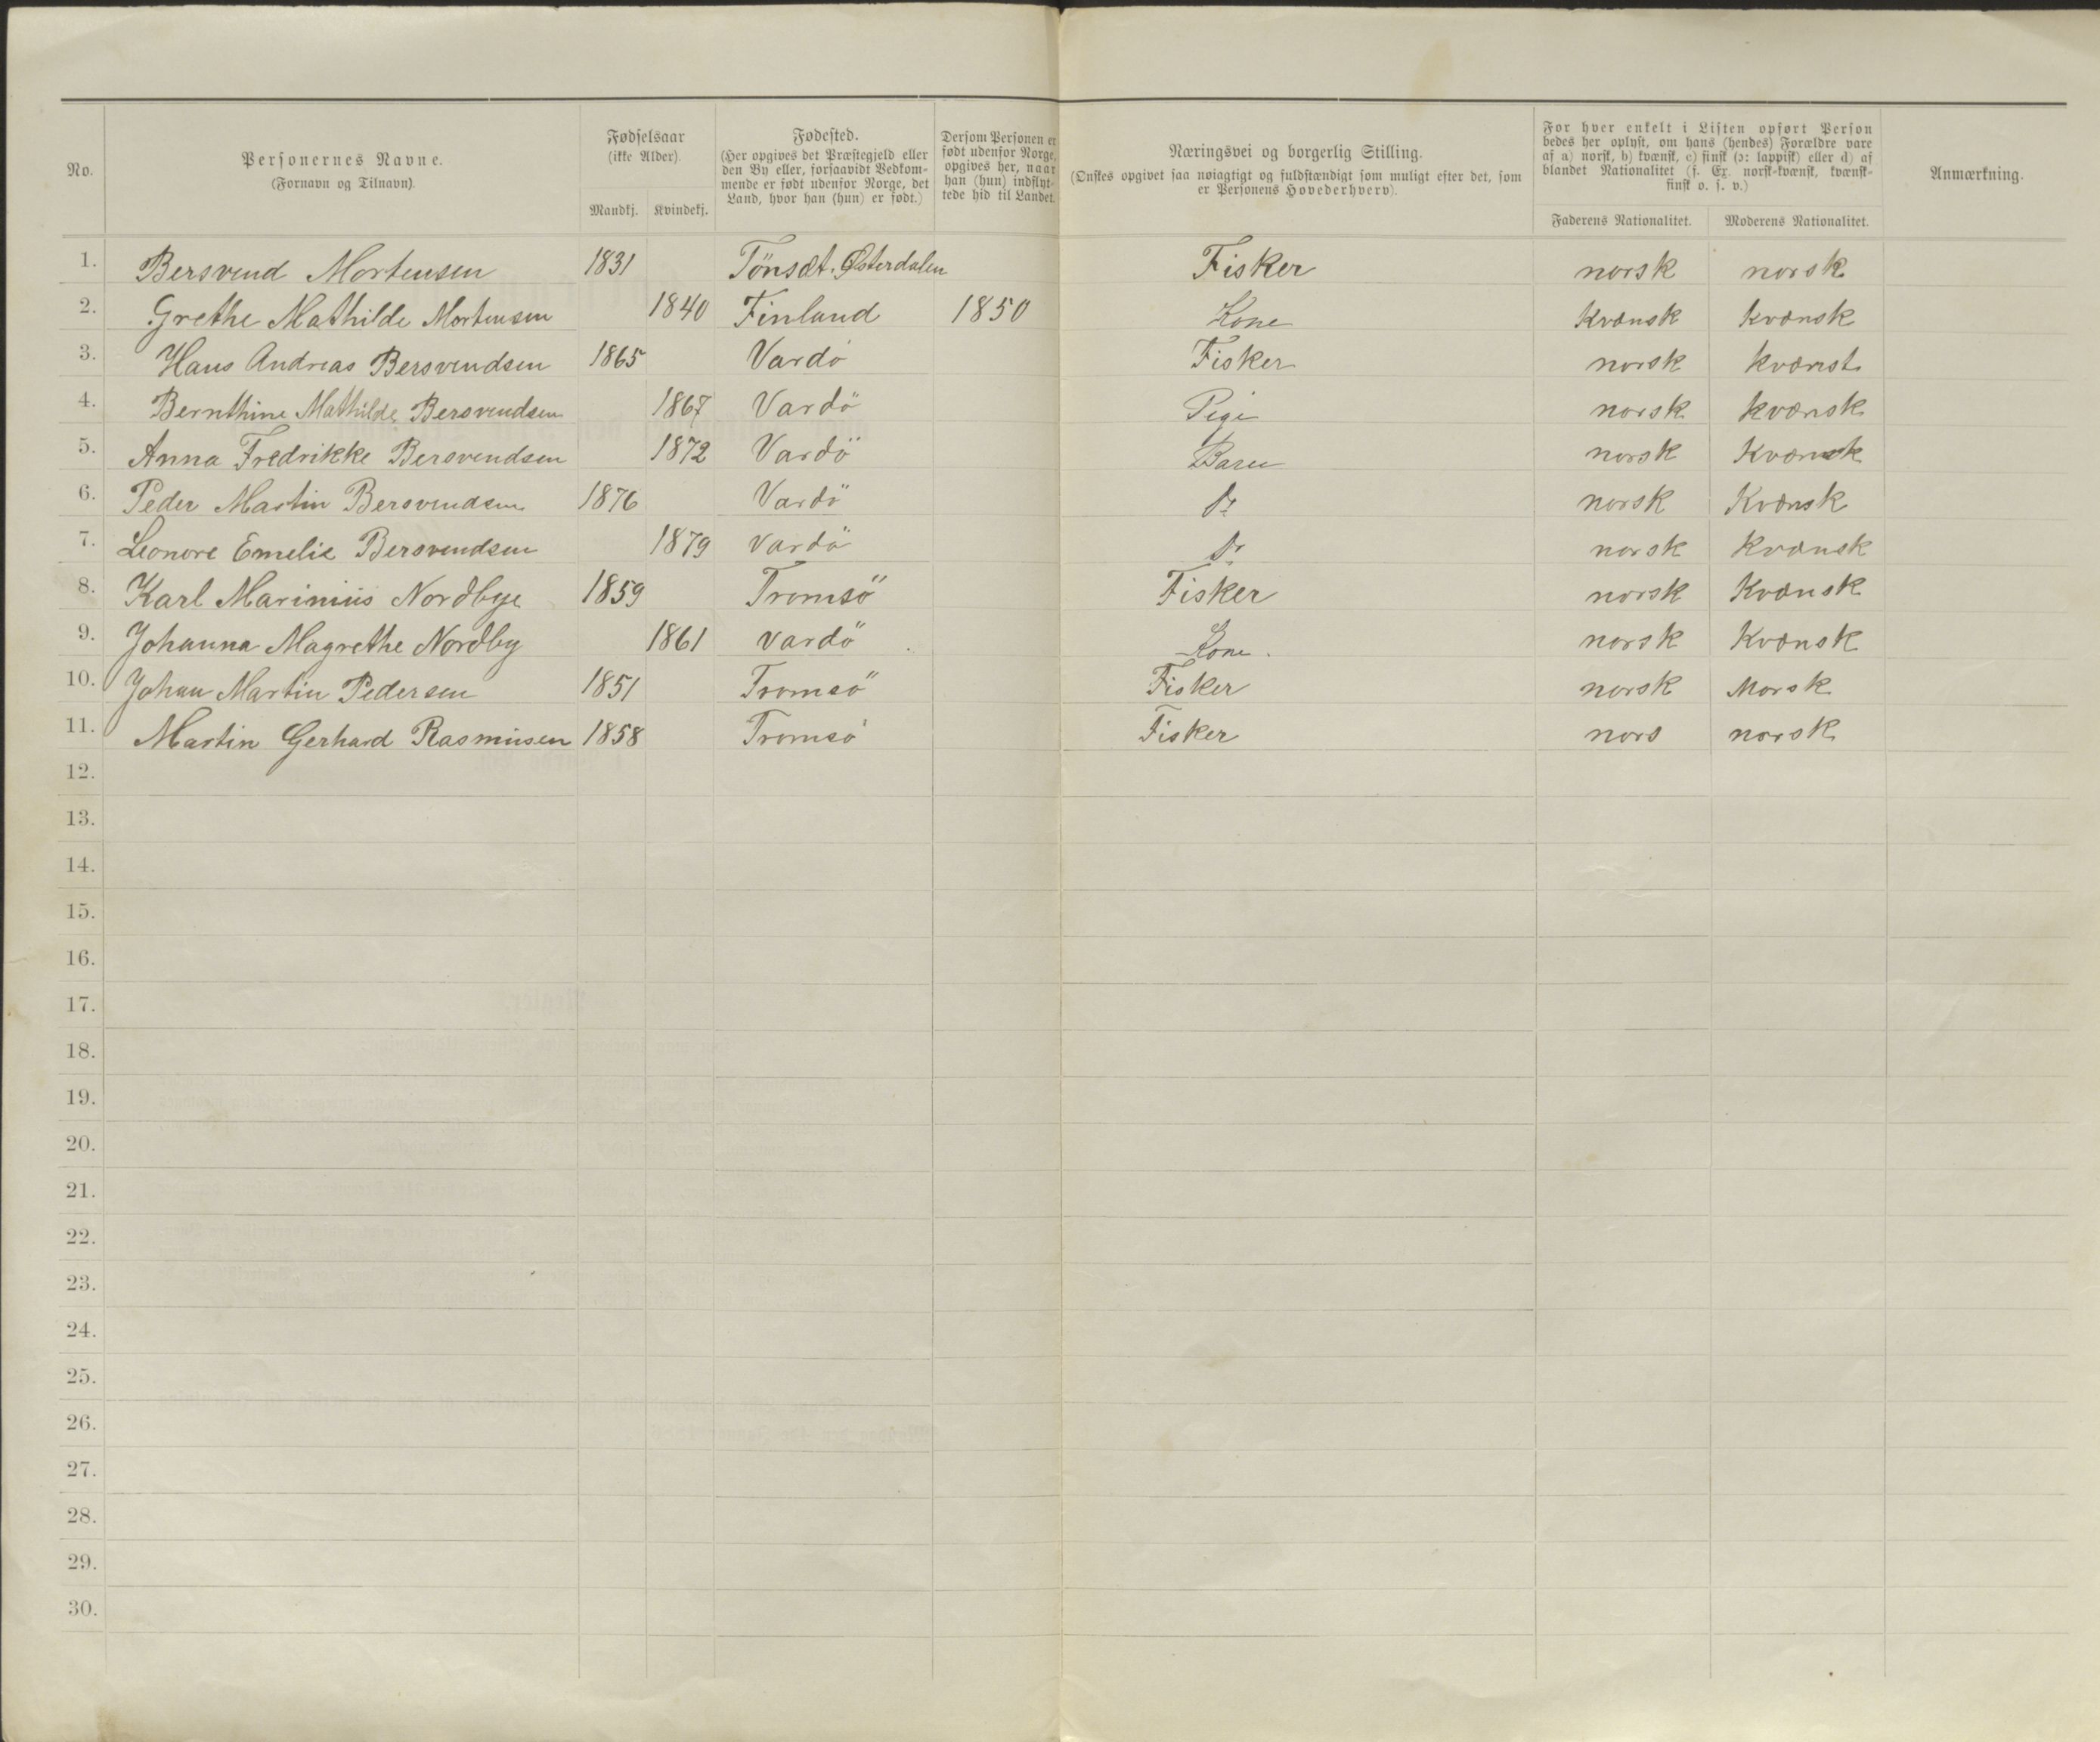 No.
Personernes Navne.
(Fornavn og Tilnavn).
Fødselsaar
(ikke Alder).
Mandkj. Kvindekj.
Fødested.
(Her opgives det Præstegjeld eller
den By eller, forsaavidt Vedkom-
mende er født udenfor Norge, det
Land, hvor han (hun) er født.)
Dersom Personen er
født udenfor Norge,
opgives her, naar
han (hun) indflyt-
tede hid til Landet.
Næringsvei og borgerlig Stilling.
(Ønskes opgivet saa nøiagtigt og fuldstændigt som muligt efter det, som
er Personens Hovederhverv).
For hver enkelt i Listen opført Person
bedes her oplyst, om hans (hendes) Forældre vare
af a) norsk, b) kvænsk, c) finsk (ɔ: lappisk) eller d) af
blandet Nationalitet (f. Ex. norsk-kvænsk, kvænsk-
finsk o. s. v.)
Faderens Nationalitet. Moderens Nationalitet.
Anmærkning.
1. Bersvend Mortensen 1831 Tönsæt. Østerdalen Fisker norsk norsk
2. Grethe Mathilde Mortensen 1840 Finland 1850 Kone Kvænsk kvænsk
3. Hans Andreas Bersvendsen 1865 Vardö Fisker norsk kvænst
4. Bernthine Mathilde Bersvendsen 1867 Vardö Pige norsk kvænsk
5. Anna Fredrikke Bersvendsen 1872 Vardö Barn norsk Kvænsk
6. Peder Martin Bersvendsen 1876 Vardö Do norsk Kvænsk
7. Leonore Emelie Bersvendsen 1879 Vardö Do norsk Kvænsk
8. Karl Marinius Nordbye 1859 Tromsö Fisker norsk Kvænsk
9. Johanna Magrethe Nordby 1861 Vardö Kone. norsk Kvænsk
10. Johan Martin Pedersen 1851 Tromsö Fisker norsk Norsk
11. Martin Gerhard Rasmusen 1858 Tromsö Fisker nors norsk
12.
13.
14.
15.
16.
17.
18.
19.
20.
21.
22.
23.
24.
25.
26.
27.
28.
29.
30.